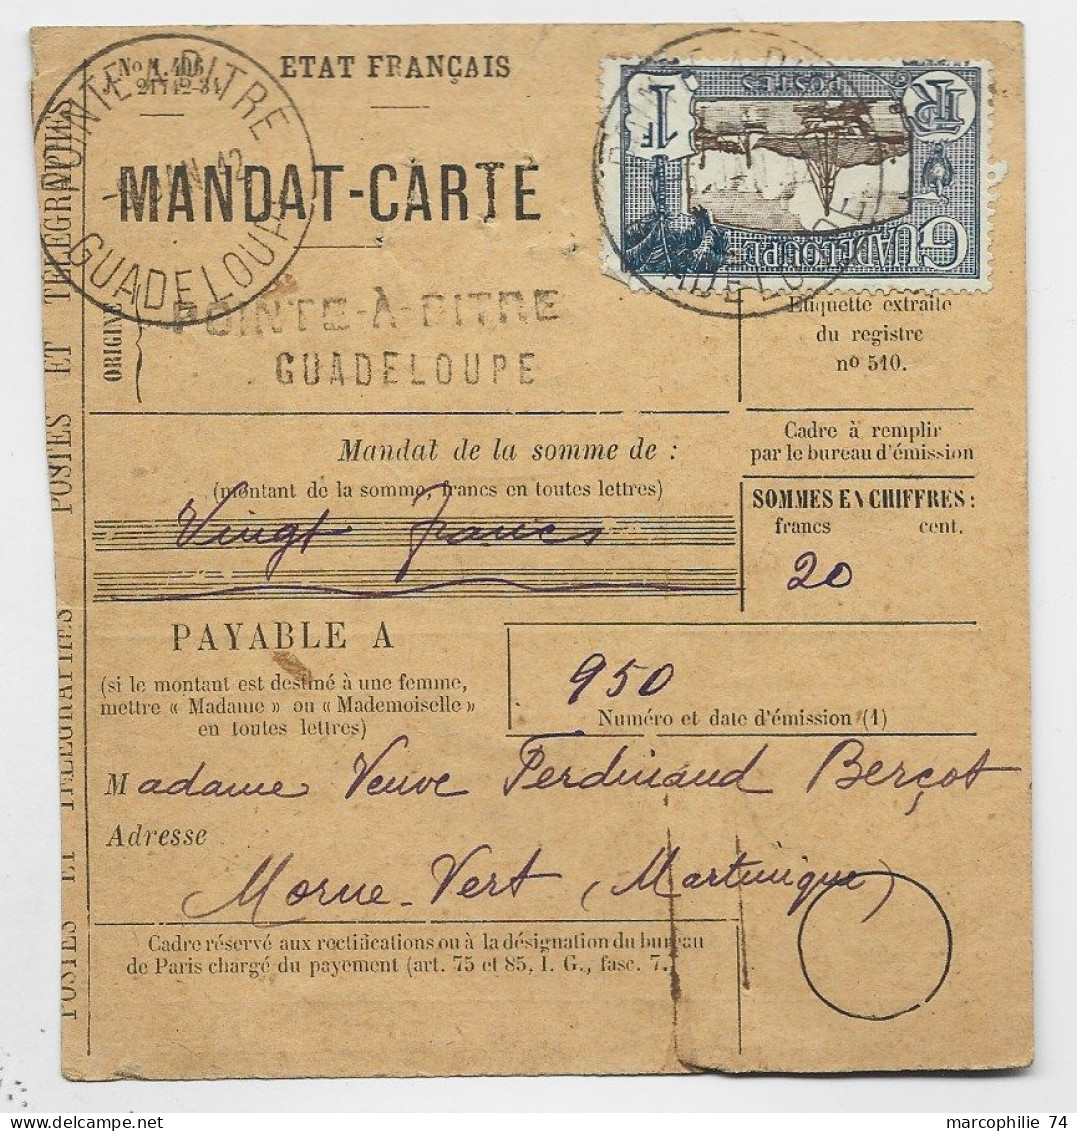 No M. 406
21742-34
ETAT FRANÇAIS
POINTE A PITRE
GUADELOUPE
MANDAT-CARTE
ORIGINE
POINTE-A-PITRE
GUADELOUPE
1F
POSTES
RF
GUADELOUPE
Etiquette extraite
du registre
no 510.
Mandat de la somme de :
(montant de la somme, francs en toutes lettres)
Vingt francs
Cadre à remplir
par le bureau d'émission
SOMMES EN CHIFFRES :
francs cent.
20
PAYABLE A
(si le montant est destiné à une femme,
mettre « Madame » ou « Mademoiselle »
en toutes lettres)
950
Numéro et date d'émission (1)
Madame Veuve Ferdinand Berçot
Adresse
Morne-Vert (Martinique)
Cadre réservé aux rectifications ou à la désignation du bureau
de Paris chargé du payement (art. 75 et 85, I. G., fasc. 7.)
POSTES ET TÉLÉGRAPHES POSTES ET TÉLÉGRAPHES
marcophilie 74